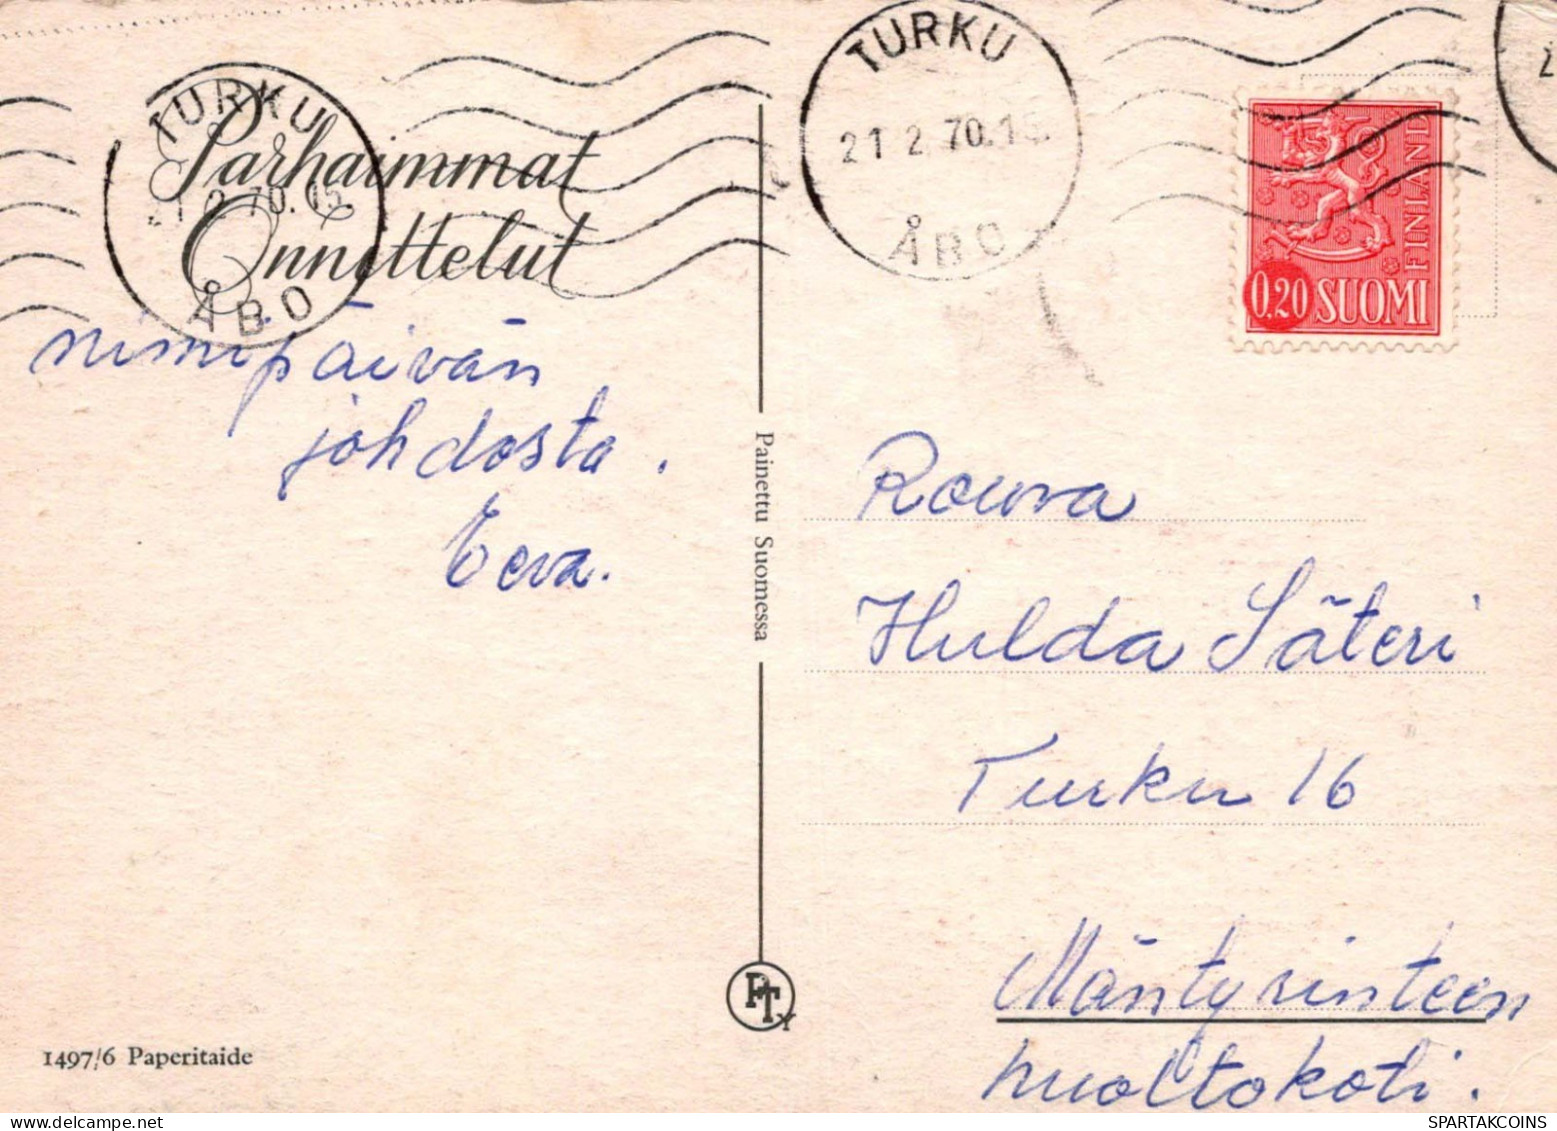 TURKU
21 2 70.15.
ÅBO
Parhaimmat
Onnettelut
nimipäivän
johdosta.
Eeva.
1497/6 Paperitaide
Painettu Suomessa
PTy
TURKU
21 2. 70.15.
ÅBO
FINLAND
0,20 SUOMI
2
Rouva
Hulda Säteri
Turku 16
Mäntyrinteen
huoltokoti.
SPARTAKCOINS